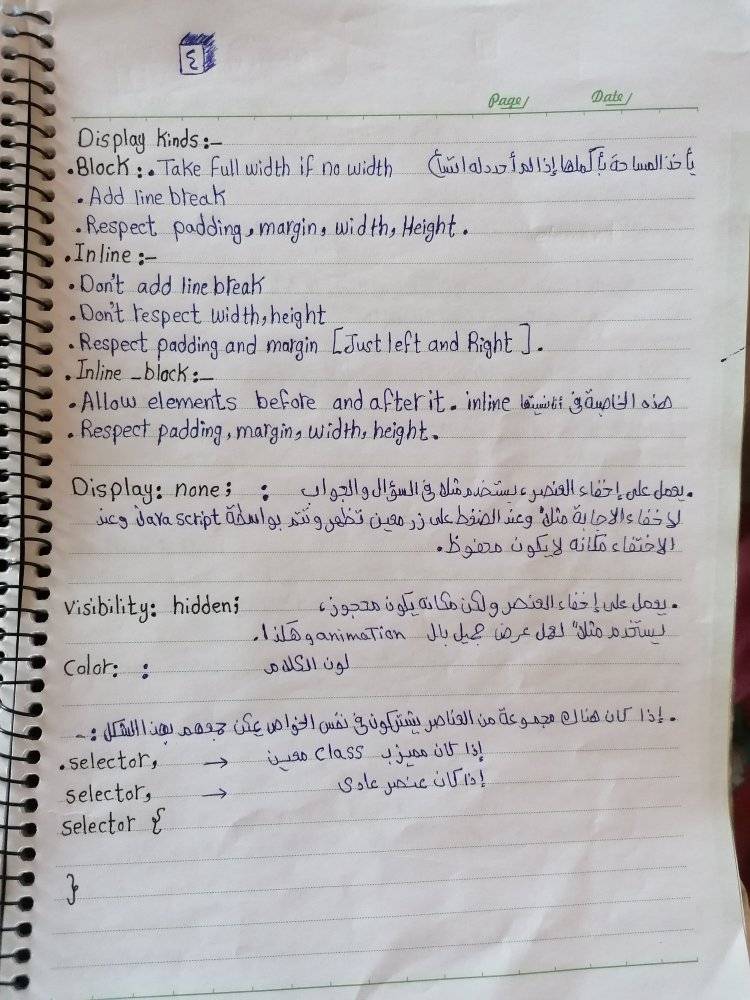 ٤
Page/ Date/
Display kinds:-
.Block: . Take full width if no width يأخذ المساحة بأكملها إذا لم أحدد له
. Add line break
. Respect padding, margin, width, Height.
. Inline :-
. Don't add line break
. Don't respect width, height
. Respect padding and margin [Just left and Right].
. Inline _block:-
. Allow elements before and after it. هذه الخاصية في inline
. Respect padding, margin, width, height.
Display: none; : يعمل على إخفاء العنصر، يستخدم مثلا في السؤال والجواب.
لإخفاء الاجابة مثلاً وعند الضغط على زر معين تظهر وتتم بواسطة Java script وعند
الاختفاء مكانه لا يكون محفوظ.
visibility: hidden; . يعمل على إخفاء العنصر ولكن مكانه يكون محجوز،
يستخدم مثلاً لعمل عرض جميل بال animation وهكذا.
Color: : لون الكلام
. إذا كان هناك مجموعة من العناصر يشتركون في نفس الخواص يمكن جمعهم بهذا الشكل :-
.selector, → إذا كان مميز ب class معين
selector, → إذا كان عنصر عادى
selector {
}